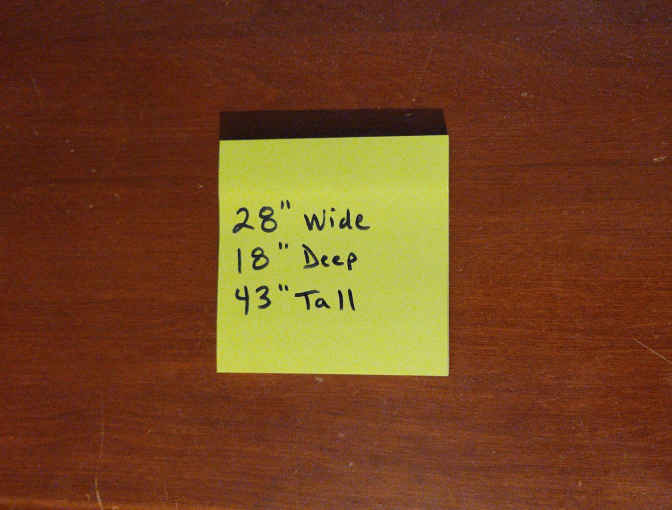 28" Wide
18" Deep
43" Tall